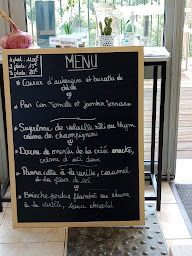 MENU
1 plat : 11€
2 plats : 15€
3 plats : 20€
* Caviar d'aubergine et burrata de
* Pan Con Tomate et Jambon Serrano
* Suprême de volaille rôti au thym
crème de champignons
* Darne de morue de la criée
crème d'ail doux
* Panna cotta à la vanille, caramel
à la fleur de sel
* Brioche perdue flambée au rhum
à la vanille, sauce chocolat